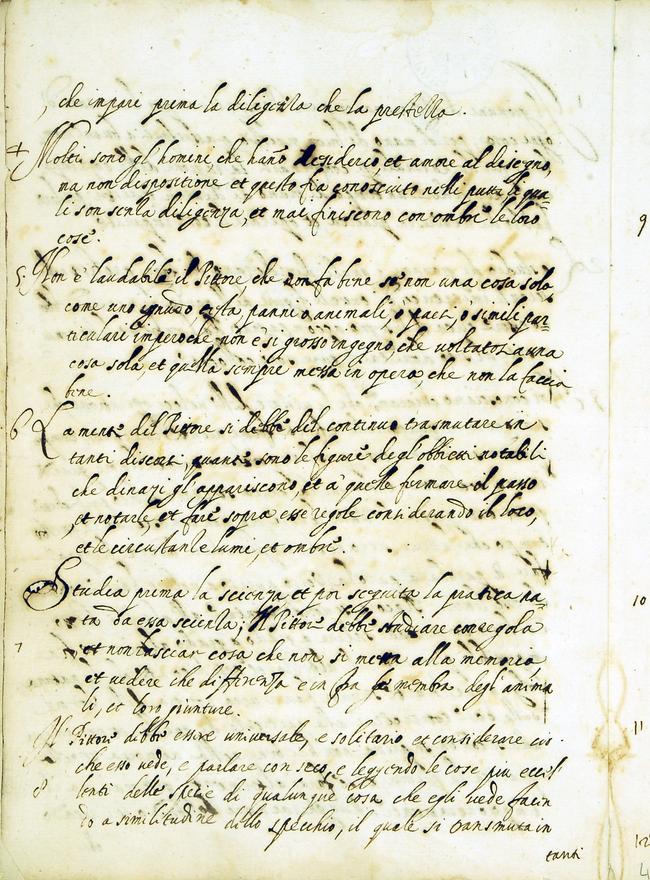 che impari prima la diligenza che la prestezza.
4 Molti sono gl'homini, che hano desiderio, et amore al disegno,
ma non dispositione et questo fia conosciuto nelli putti le qua=
li son senza diligenza, et mai finiscono con ombre le loro
cose.
5 Non è laudabile il Pittore, che non fa bene se non una cosa sola
come uno ignudo, testa, panni o animali, o paesi, o simili par=
ticulari imperoche non è si grosso ingegno, che voltatosi a una
cosa sola, et quella sempre messa in opera, che non la faccia
bene.
6 La mente del Pittore si debbe del continuo trasmutare in
tanti discorsi, quante sono le figure degl'obbietti notabili
che dinazi gl'appariscono, et a quelle fermare il passo
et notarle, et fare sopra esse regole considerando il loco,
et le circustanze lumi, et ombre.
Studia prima la scienza et poi seguita la pratica na=
ta da essa scienza; Il Pittore debbe studiare con regola
7 et non lasciar cosa che non si metta alla memoria
et vedere che differenza e in fra le membra degl'anima
li, et loro giunture.
Il Pittore debbe essere universale, e solitario et considerare cio
che esso vede, e parlare con seco, e leggendo le cose piu eccel=
8 lenti delle specie di qualunque cosa che egli vede facen
do a similitudine dello specchio, il quale si transmuta in
tanti
9
10
11
12